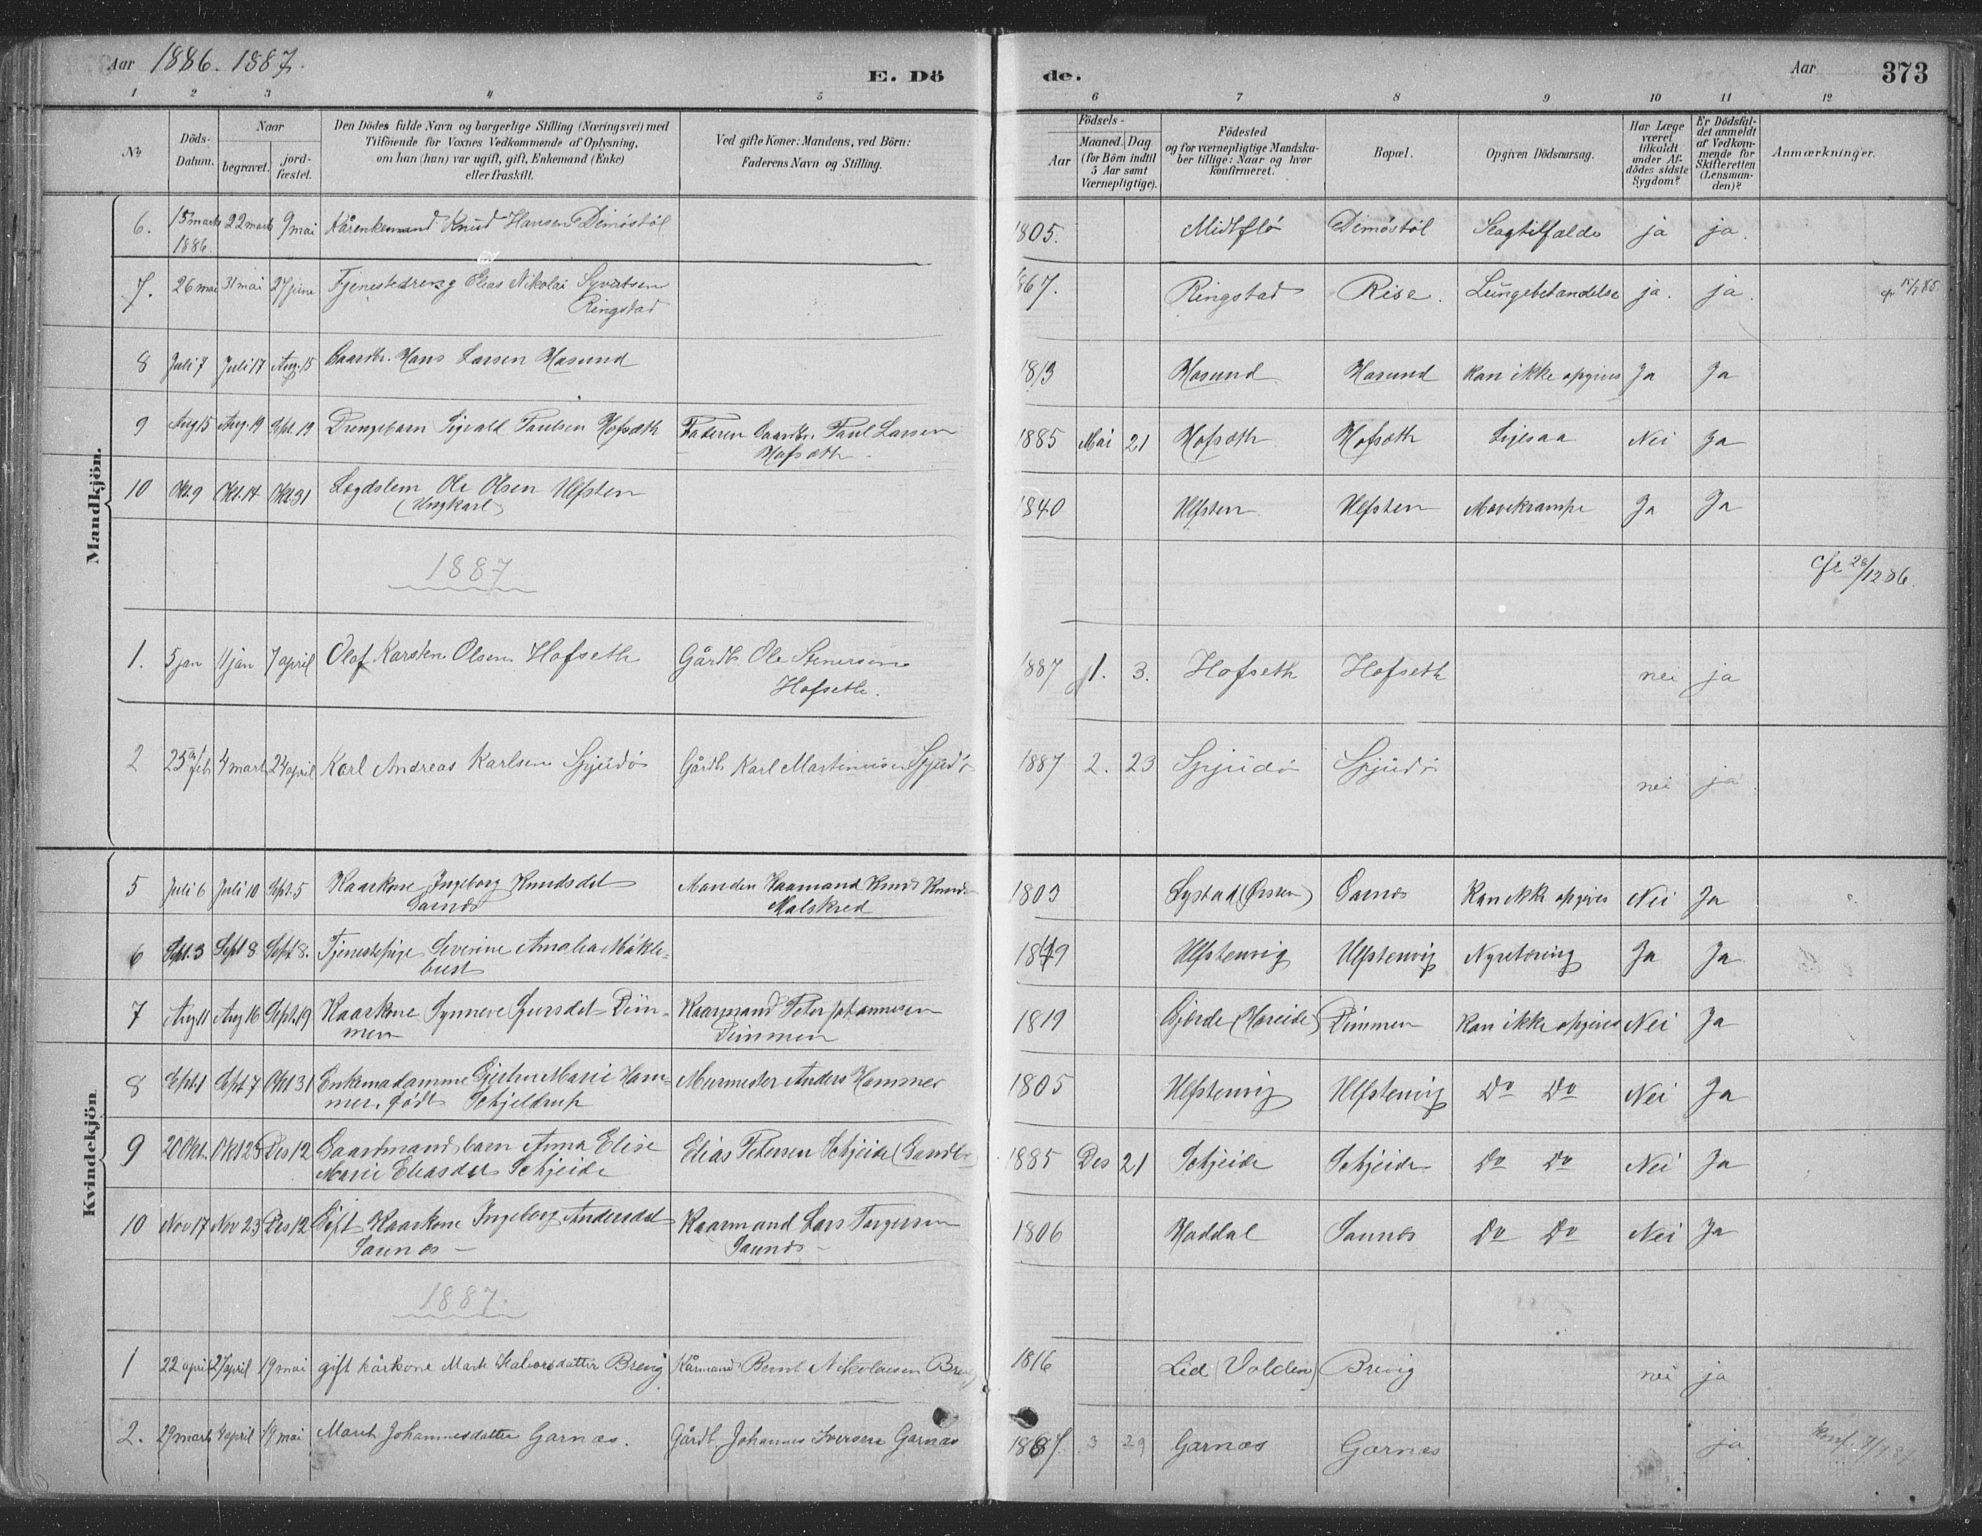 Aar 1886. 1887.
E. Dö de.
Aar 373
1 2 3 4 5 6 7 8 9 10 11 12
No
Döds-Datum.
Naar
begravet.
jordfæstet.
Den Dödes fulde Navn og borgerlige Stilling (Næringsvei) med
Tilföiende for Voxnes Vedkommende af Oplysning,
om han (hun) var ugift, gift, Enkemand (Enke)
eller fraskilt.
Ved gifte Koner: Mandens, ved Börn:
Faderens Navn og Stilling.
Födsels-
Aar
Maaned. Dag
(for Börn indtil
5 Aar samt
Værnepligtige).
Födested
og for værnepligtige Mandskaber tillige: Naar og hvor
konfirmeret.
Bopæl.
Opgiven Dödsaarsag.
Har Læge
været
tilkaldt
under Afdödes sidste
Sygdom?
Er Dödsfaldet anmeldt
af Vedkommende for
Skifteretten
(Lensmanden)?
Anmærkninger.
Mandkjön.
6. 15 marts 1886. 22 marts 9 mai Kårenkemand Knud Hansen Dimöstöl 1805. Midtflö Dimöstöl Slagtilfælde ja ja.
7. 26 mai 31 mai 27 june Tjenestedreng Elias Nikolai Syvertsen
Ringstad 1867. Ringstad Rise. Lungebetændelse ja. ja.
8 Juli 7 Juli 17 Aug. 15 Gaardbr. Hans Larsen Hasund 1813 Hasund Hasund Kan ikke opgives Ja Ja
9 Aug 15 Aug. 19 Sept. 19 Drengebarn Sigvald Paulsen Hofsæth Faderen Gaardbr. Paul Larsen
Hofsæth. 1885 Mai 21 Hofsæth Hofsæth Nei Ja
10 Okt. 9 Okt. 14 Okt. 31 Lægdslem Ole Olsen Ulfsten
(Ungkarl) 1840 Ulfsten Ulfsten Mavekrampe Ja Ja
1887
cfr 28/12 86.
1. 5 jan 11 jan 7 april Olaf Karsten Olsen Hofseth Gårdb. Ole Stenersen
Hofseth. 1887 1. 3. Hofseth Hofseth nei ja
2 25 feb 4 marts 24 april Karl Andreas Karlsen Spjudö Gårdb. Karl Martinusen Spjudö 1887 2. 23 Spjudö Spjudö nei ja
Kvindekjön.
5 Juli 6 Juli 10 Sept. 5 Kaarkone Ingeborg Knudsdat
Saunæs Manden Kaarmand Knud Knudsen
Malskred 1803 Systad (Örsten) Saunæs Kan ikke opgives Nei Ja
6 Sept. 3 Sept 8 Sept 8. Tjenestepige Severine Amalia Mökle-
bust 1849 Ulfstenvig Ulfstenvig Nyretæring Ja Ja
7 Aug 11 Aug 16 Sept. 19 Kaarkone Synneve Sjursdat Dim-
men Kaarmand Peter Johannesen
Dimmen 1819 Gjerde (Hareide) Dimmen Kan ikke opgives Nei Ja
8 Sept. 1 Sept 7 Okt 31 Enkemadamme Gjertru Marie Ham-
mer, född Schjeldrup Murmester Anders Hammer 1805 Ulfstenvig Ulfstenvig Do Do Nei Ja
9 20 Okt. Okt 25 Des 12 Gaardmandsbarn Anna Elise
Marie Eliasdat Schjeide Elias Petersen Schjeide (Gaardbr 1885 Des 21 Schjeide Schjeide Do Do Nei Ja
10 Nov 17 Nov 23 Des 12 Gift Kaarkone Ingeborg Andersdat
Saunæs Kaarmand Lars Torgersen
Saunæs 1806 Haddal Saunæs Do Do Nei Ja
1887.
1 22 april 27 april 19 mai gift kårkone Marte Halvorsdatter Brevig Kårmand Bernt Nikolaisen Bre 1816 Lid (Volden) Brevig nei ja
2. 29 marts 4 april 19 mai Marit Johannesdatter Garnæs. Gårdb. Johannes Iversen Garnæs 1887. 3 29 Garnæs Garnæs ja